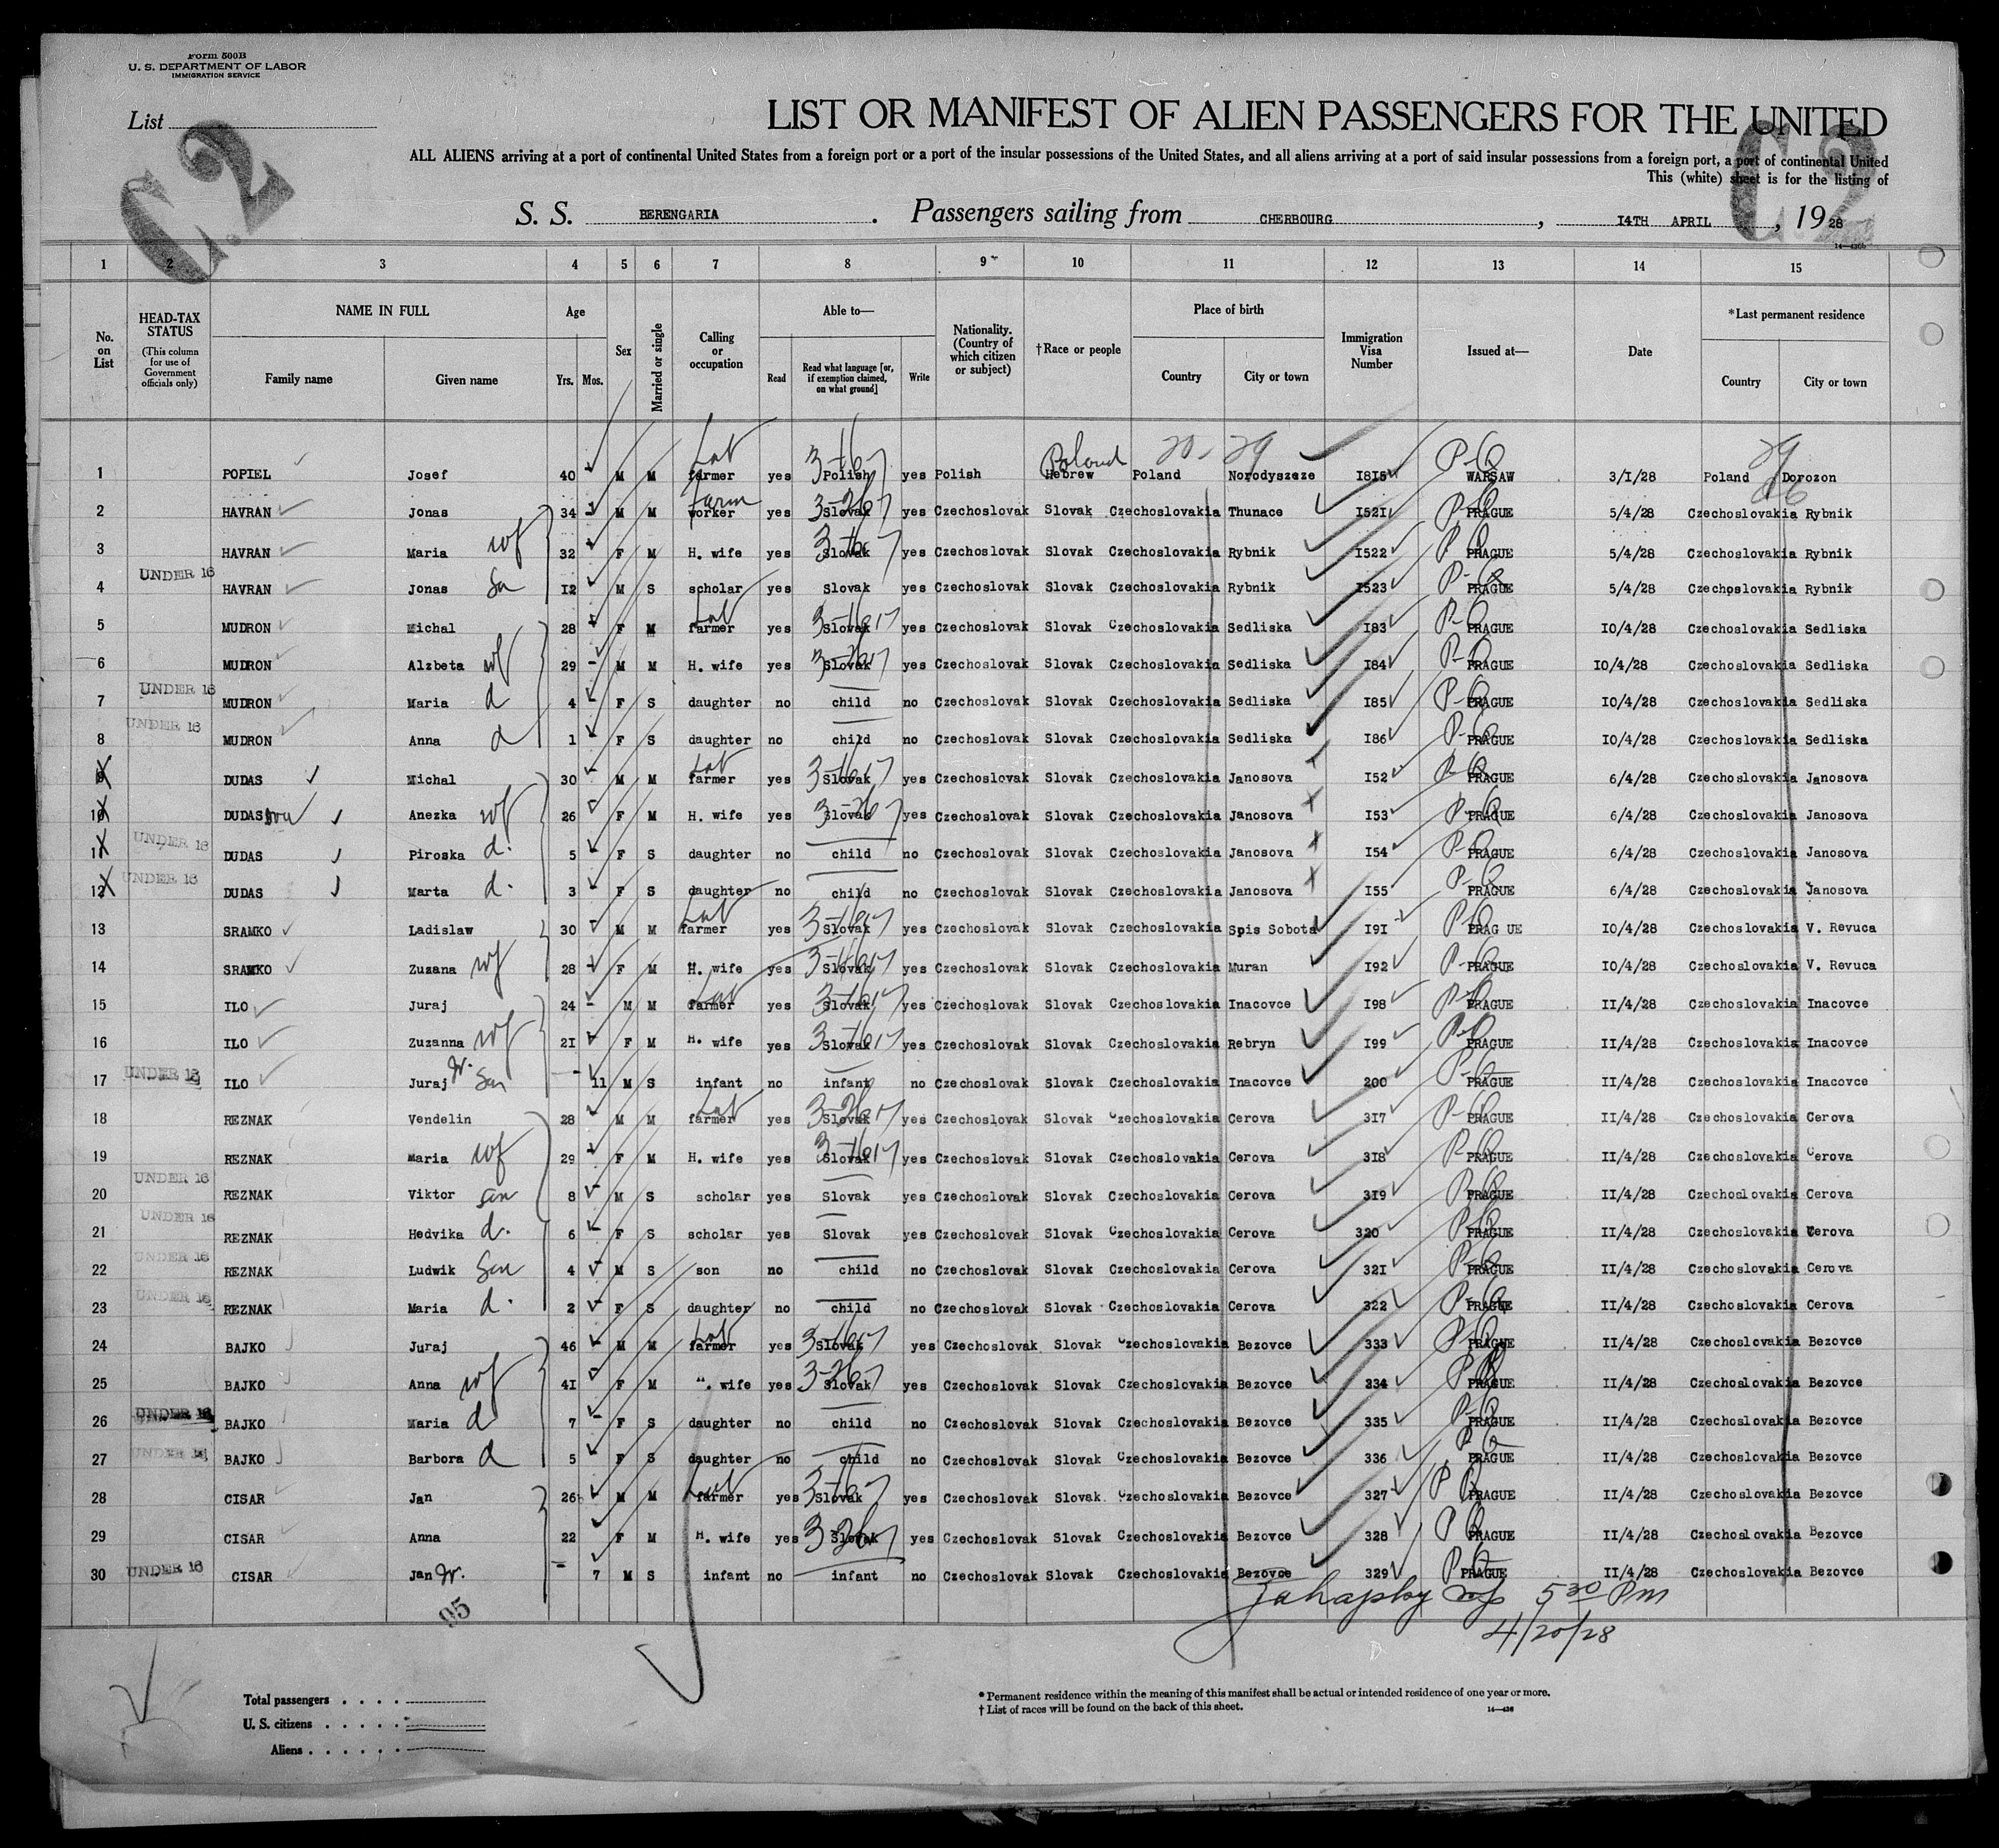 Form 500B
U. S. DEPARTMENT OF LABOR
IMMIGRATION SERVICE
List
C.2
C.2
LIST OR MANIFEST OF ALIEN PASSENGERS FOR THE UNITED
ALL ALIENS arriving at a port of continental United States from a foreign port or a port of the insular possessions of the United States, and all aliens arriving at a port of said insular possessions from a foreign port, a port of continental United
This (white) sheet is for the listing of
S. S. BERENGARIA . Passengers sailing from CHERBOURG , 14TH APRIL , 1928
1 2 3 4 5 6 7 8 9 10 11 12 13 14 15
No. on List
HEAD-TAX STATUS (This column for use of Government officials only)
NAME IN FULL Family name Given name
Age Yrs. Mos.
Sex
Married or single
Calling or occupation
Able to— Read Read what language [or, if exemption claimed, on what ground] Write
Nationality. (Country of which citizen or subject)
†Race or people
Place of birth Country City or town
Immigration Visa Number
Issued at—
Date
*Last permanent residence Country City or town
1 POPIEL Josef 40 M M farmer yes Polish yes Polish Hebrew Poland Poland Norodyszeze 1815 WARSAW 3/1/28 Poland Dorozon
2 HAVRAN Jonas 34 M M farm worker yes Slovak yes Czechoslovak Slovak Czechoslovakia Thunace 1521 PRAGUE 5/4/28 Czechoslovakia Rybnik
3 HAVRAN Maria wf 32 F M H. wife yes Slovak yes Czechoslovak Slovak Czechoslovakia Rybnik 1522 PRAGUE 5/4/28 Czechoslovakia Rybnik
4 UNDER 16 HAVRAN Jonas 12 M S scholar yes Slovak yes Czechoslovak Slovak Czechoslovakia Rybnik 1523 PRAGUE 5/4/28 Czechoslovakia Rybnik
5 MUDRON Michal 28 F M farmer yes Slovak yes Czechoslovak Slovak Czechoslovakia Sedliska 183 PRAGUE 10/4/28 Czechoslovakia Sedliska
6 MUDRON Alzbeta wf 29 M M H. wife yes Slovak yes Czechoslovak Slovak Czechoslovakia Sedliska 184 PRAGUE 10/4/28 Czechoslovakia Sedliska
7 UNDER 16 MUDRON Maria d 4 F S daughter no child no Czechoslovak Slovak Czechoslovakia Sedliska 185 PRAGUE 10/4/28 Czechoslovakia Sedliska
8 UNDER 16 MUDRON Anna d 1 F S daughter no child no Czechoslovak Slovak Czechoslovakia Sedliska 186 PRAGUE 10/4/28 Czechoslovakia Sedliska
9 DUDAS Michal 30 M M farmer yes Slovak yes Czechoslovak Slovak Czechoslovakia Janosova 152 PRAGUE 6/4/28 Czechoslovakia Janosova
10 DUDAS Anezka wf 26 F M H. wife yes Slovak yes Czechoslovak Slovak Czechoslovakia Janosova 153 PRAGUE 6/4/28 Czechoslovakia Janosova
11 UNDER 16 DUDAS Piroska d. 5 F S daughter no child no Czechoslovak Slovak Czechoslovakia Janosova 154 PRAGUE 6/4/28 Czechoslovakia Janosova
12 UNDER 16 DUDAS Marta d. 3 F S daughter no child no Czechoslovak Slovak Czechoslovakia Janosova 155 PRAGUE 6/4/28 Czechoslovakia Janosova
13 SRAMKO Ladislaw 30 M M farmer yes Slovak yes Czechoslovak Slovak Czechoslovakia Spis Sobota 191 PRAG UE 10/4/28 Czechoslovakia V. Revuca
14 SRAMKO Zuzana wf 28 F M H. wife yes Slovak yes Czechoslovak Slovak Czechoslovakia Muran 192 PRAGUE 10/4/28 Czechoslovakia V. Revuca
15 ILO Juraj 24 M M farmer yes Slovak yes Czechoslovak Slovak Czechoslovakia Inacovce 198 PRAGUE 11/4/28 Czechoslovakia Inacovce
16 ILO Zuzanna wf 21 F M H. wife yes Slovak yes Czechoslovak Slovak Czechoslovakia Rebryn 199 PRAGUE 11/4/28 Czechoslovakia Inacovce
17 UNDER 16 ILO Juraj Jr. Son 11 M S infant no infant no Czechoslovak Slovak Czechoslovakia Inacovce 200 PRAGUE 11/4/28 Czechoslovakia Inacovce
18 REZNAK Vendelin 28 M M farmer yes Slovak yes Czechoslovak Slovak Czechoslovakia Cerova 317 PRAGUE 11/4/28 Czechoslovakia Cerova
19 REZNAK Maria wf 29 F M H. wife yes Slovak yes Czechoslovak Slovak Czechoslovakia Cerova 318 PRAGUE 11/4/28 Czechoslovakia Cerova
20 UNDER 16 REZNAK Viktor son 8 M S scholar yes Slovak yes Czechoslovak Slovak Czechoslovakia Cerova 319 PRAGUE 11/4/28 Czechoslovakia Cerova
21 UNDER 16 REZNAK Hedvika d. 6 F S scholar yes Slovak yes Czechoslovak Slovak Czechoslovakia Cerova 320 PRAGUE 11/4/28 Czechoslovakia Cerova
22 UNDER 16 REZNAK Ludwik Son 4 M S son no child no Czechoslovak Slovak Czechoslovakia Cerova 321 PRAGUE 11/4/28 Czechoslovakia Cerova
23 UNDER 16 REZNAK Maria d. 2 F S daughter no child no Czechoslovak Slovak Czechoslovakia Cerova 322 PRAGUE 11/4/28 Czechoslovakia Cerova
24 BAJKO Juraj 46 M M farmer yes Slovak yes Czechoslovak Slovak Czechoslovakia Bezovce 333 PRAGUE 11/4/28 Czechoslovakia Bezovce
25 BAJKO Anna wf 41 F M H. wife yes Slovak yes Czechoslovak Slovak Czechoslovakia Bezovce 334 PRAGUE 11/4/28 Czechoslovakia Bezovce
26 UNDER 16 BAJKO Maria d 7 F S daughter no child no Czechoslovak Slovak Czechoslovakia Bezovce 335 PRAGUE 11/4/28 Czechoslovakia Bezovce
27 UNDER 16 BAJKO Barbora d 5 F S daughter no child no Czechoslovak Slovak Czechoslovakia Bezovce 336 PRAGUE 11/4/28 Czechoslovakia Bezovce
28 CISAR Jan 26 M M farmer yes Slovak yes Czechoslovak Slovak Czechoslovakia Bezovce 327 PRAGUE 11/4/28 Czechoslovakia Bezovce
29 CISAR Anna 22 F M H. wife yes Slovak yes Czechoslovak Slovak Czechoslovakia Bezovce 328 PRAGUE 11/4/28 Czechoslovakia Bezovce
30 UNDER 16 CISAR Jan Jr. 7 M S infant no infant no Czechoslovak Slovak Czechoslovakia Bezovce 329 PRAGUE 11/4/28 Czechoslovakia Bezovce
5 30 Pm
95
4/20/28
Total passengers . . . .
U. S. citizens . . . . .
Aliens . . . . . .
* Permanent residence within the meaning of this manifest shall be actual or intended residence of one year or more.
† List of races will be found on the back of this sheet.